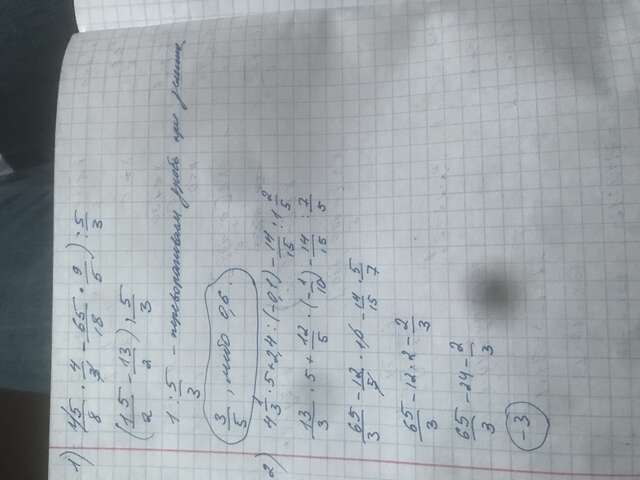 1) (45/8 · 4/3 - 65/18 · 9/5) : 5/3
(15/2 - 13/2) : 5/3
1 : 5/3 - переворачиваем дробь при делении.
3/5, либо 0,6.
2) 4 1/3 · 5 + 2,4 : (-0,1) - 14/15 : 1 2/5
13/3 · 5 + 12/5 : (-1/10) - 14/15 : 7/5
65/3 - 12/5 · 10 - 14/15 · 5/7
65/3 - 12 · 2 - 2/3
65/3 - 24 - 2/3
-3